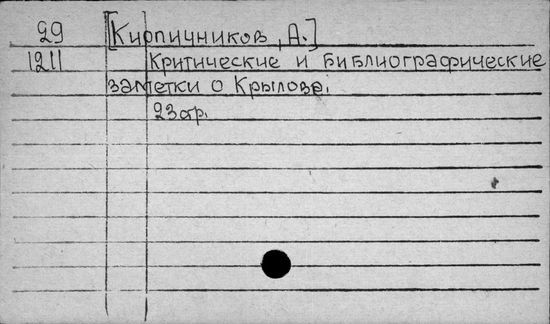 29 [Кирпичников, А.]
1211 Критические и библиографические
заметки о Крылове.
23 стр.